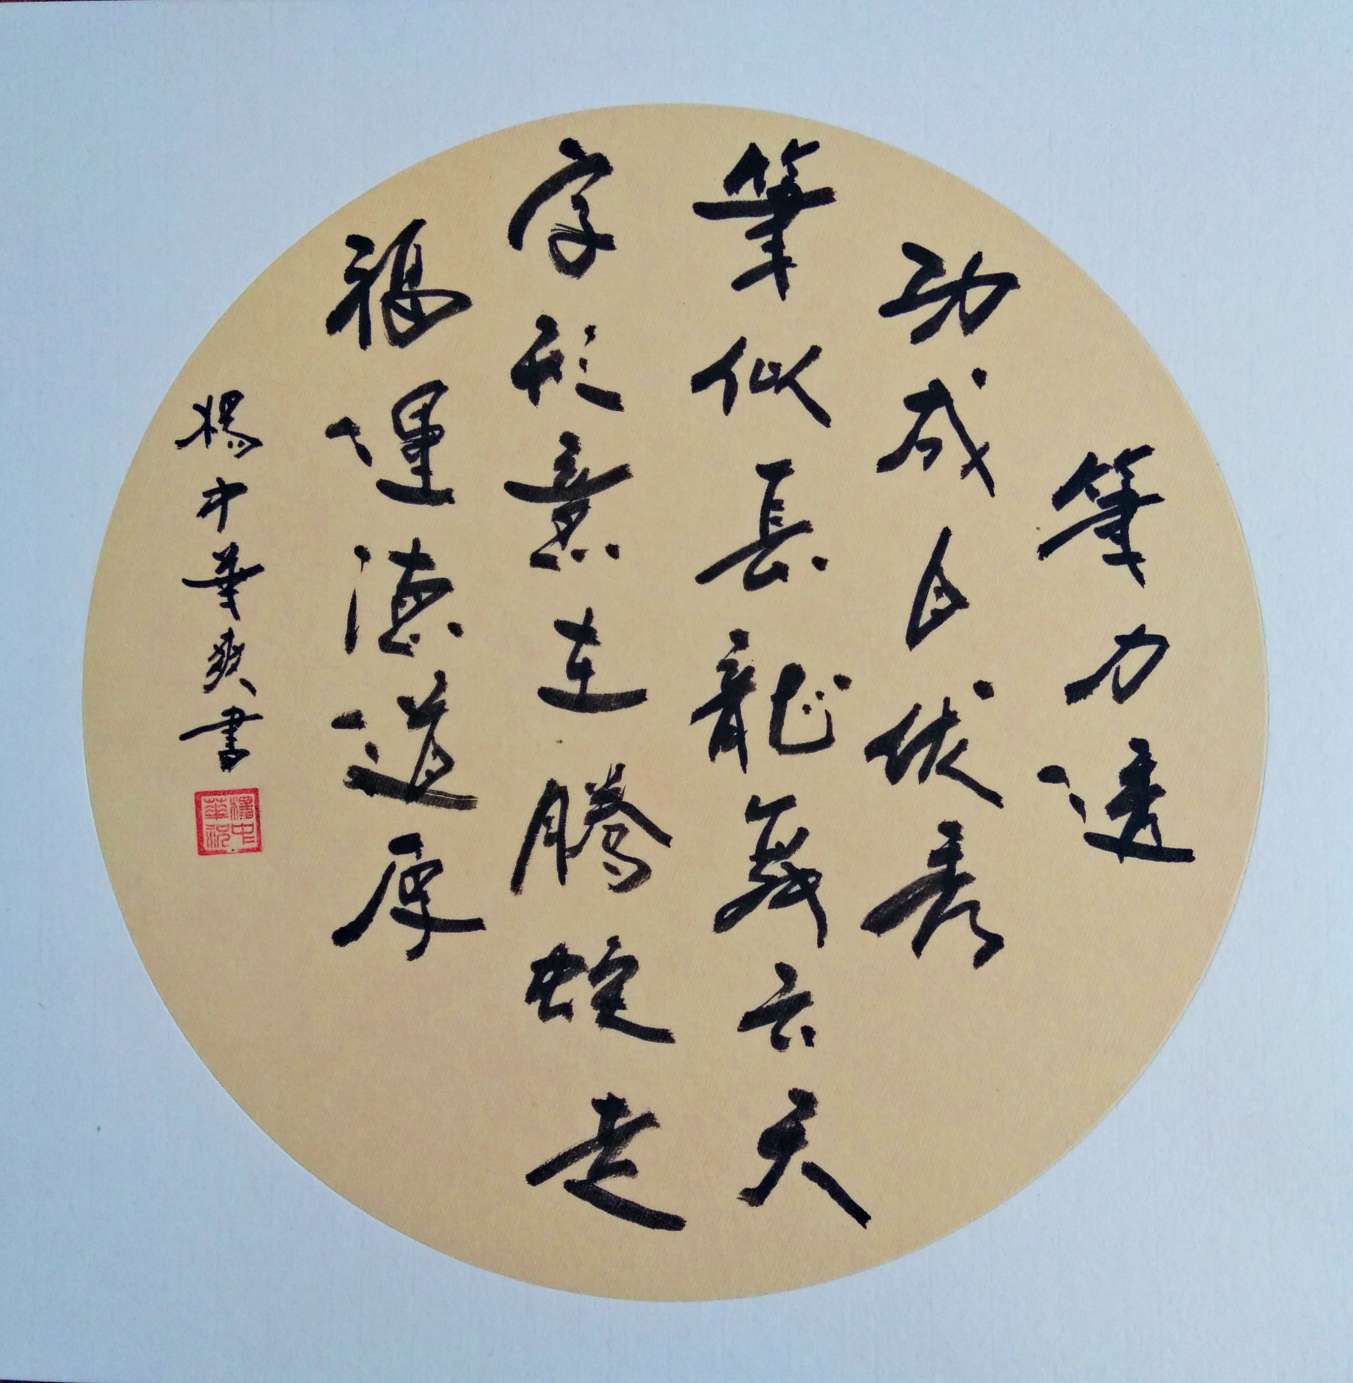 筆力透
功成自然秀
筆似長龍舞云天
字形意在騰蛇走
福運德道厚
楊中華爽書